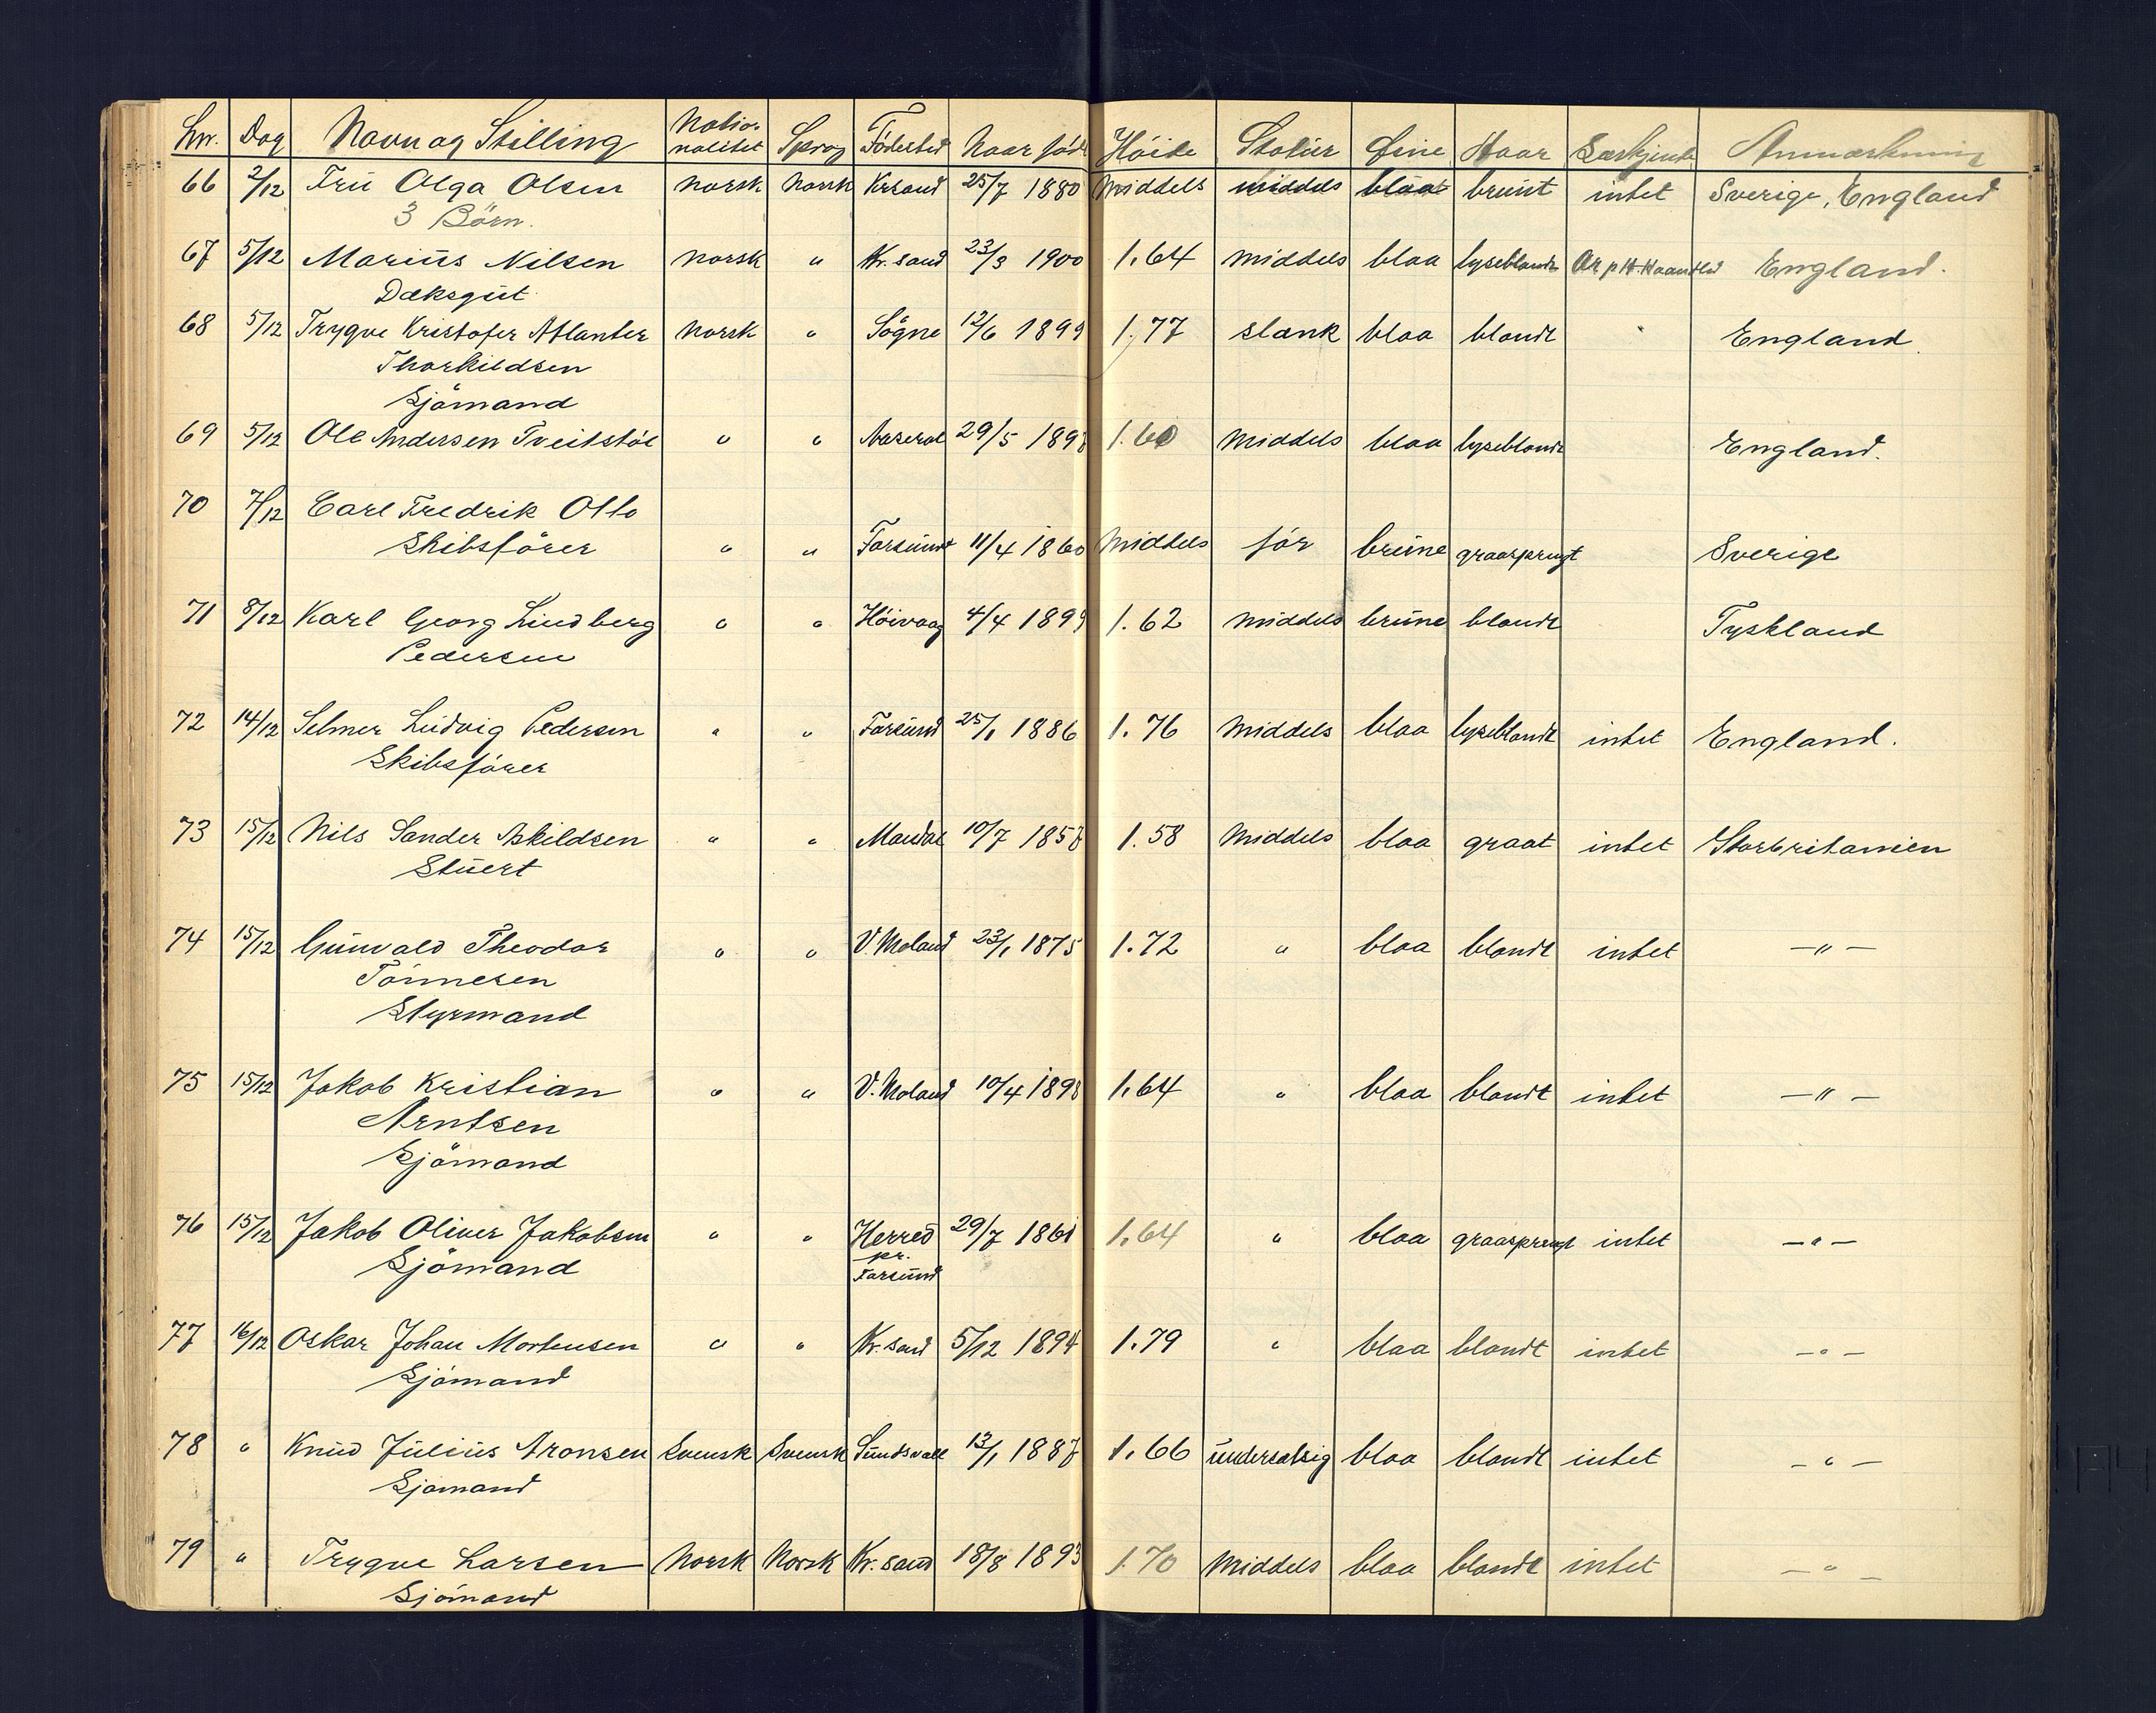 Lnr. Dag Navn og Stilling Natio- nalitet Sprog Födested Naar föd Höide Statur Öine Haar Særkjende Anmærkning
66 2/12 Frü Olga Olsen norsk norsk Krsand 25/7 1880 Middels middels blaa brünt intet Sverige, England
3 Börn.
67 5/12 Mariüs Nilsen norsk " Kr.sand 23/3 1900 1.64 middels blaa lyseblondt Ar p H. Haandled England.
Dæksgüt
68 5/12 Trygve Kristofer Atlanter norsk " Sögne 12/6 1899 1.77 slank blaa blondt " England.
Thorkildsen
Sjömand
69 5/12 Ole Andersen Tveitstöl " " Aaseral 29/5 1898 1.60 Middels blaa lyseblondt England.
70 7/12 Carl Fredrik Otto
Skibsförer " " Farsünd 11/4 1860 Middels för brüne graasprengt Sverige
71 8/12 Karl Georg Lindberg " " Höivaag 4/4 1899 1.62 middels brüne blondt Tyskland
Pedersen
72 14/12 Selmer Lüdvig Pedersen " " Farsünd 25/1 1886 1.76 Middels blaa lyseblondt intet England.
Skibsförer
73 15/12 Nils Sander Askildsen " " Mandal 10/7 1858 1.58 Middels blaa graat intet Storbritanien
Stüert
74 15/12 Günvald Theodor " " V. Moland 23/1 1875 1.72 " blaa blondt intet —"—
Tönnesen
Styrmand
75 15/12 Jakob Kristian " " V. Moland 10/4 1898 1.64 " blaa blondt intet —"—
Arntsen
Sjömand
76 15/12 Jakob Oliver Jakobsen " " Herred 29/7 1861 1.64 " blaa graasprengt intet —"—
Sjömand pr.
Farsünd
77 16/12 Oskar Johan Mortensen " " Kr.sand 5/12 1894 1.79 " blaa blondt intet —"—
Sjömand
78 " Knüd Jüliüs Aronsen Svensk Svensk Sündsvall 13/1 1887 1.66 ündersatsig blaa blondt intet —"—
Sjömand
79 " Trygve Larsen Norsk Norsk Kr.sand 18/8 1893 1.70 Middels blaa blondt intet —"—
Sjömand